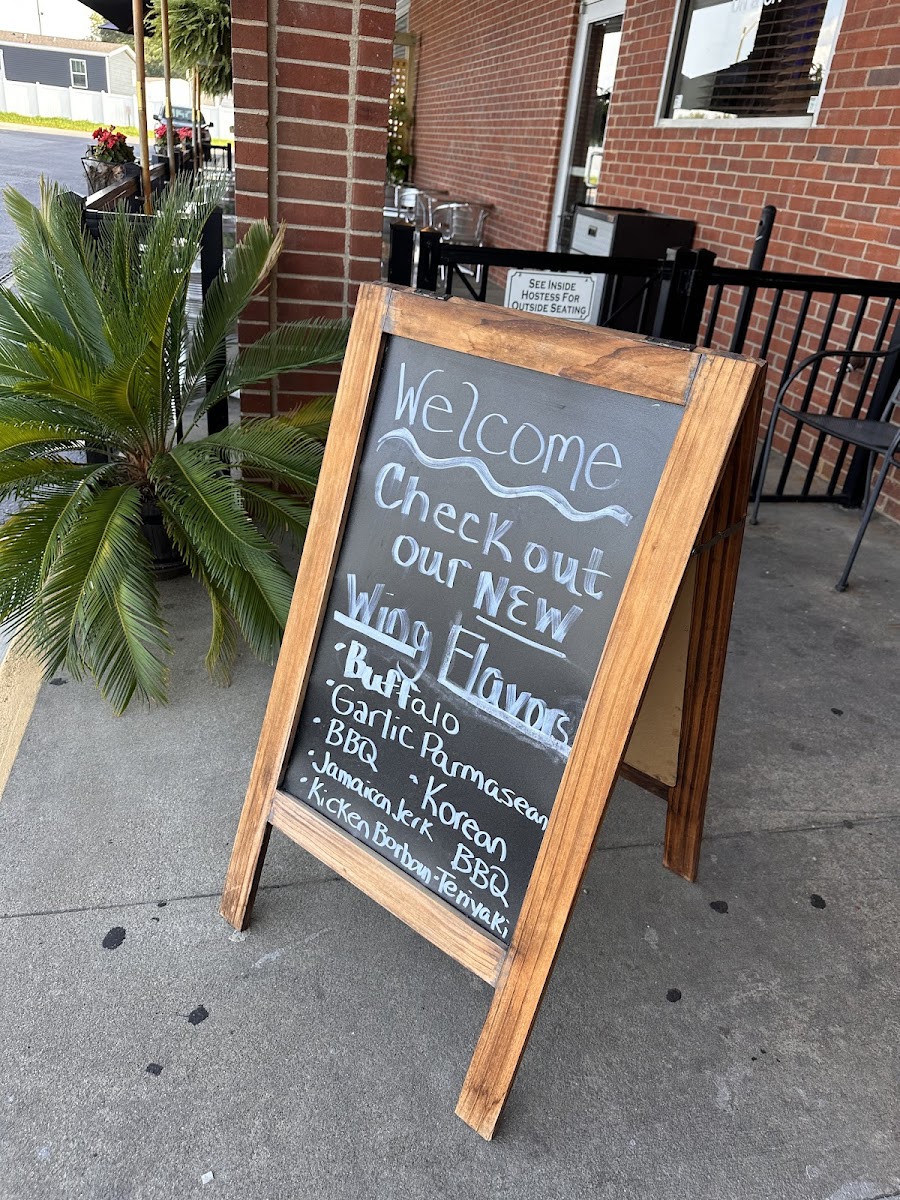 SEE INSIDE
HOSTESS FOR
OUTSIDE SEATING
Welcome
Check out
our NEW
Wing Flavors
• Buffalo
• Garlic Parmasean
• BBQ
• Korean
BBQ
• Jamaican Jerk
• Kicken Borboun-Teriyaki